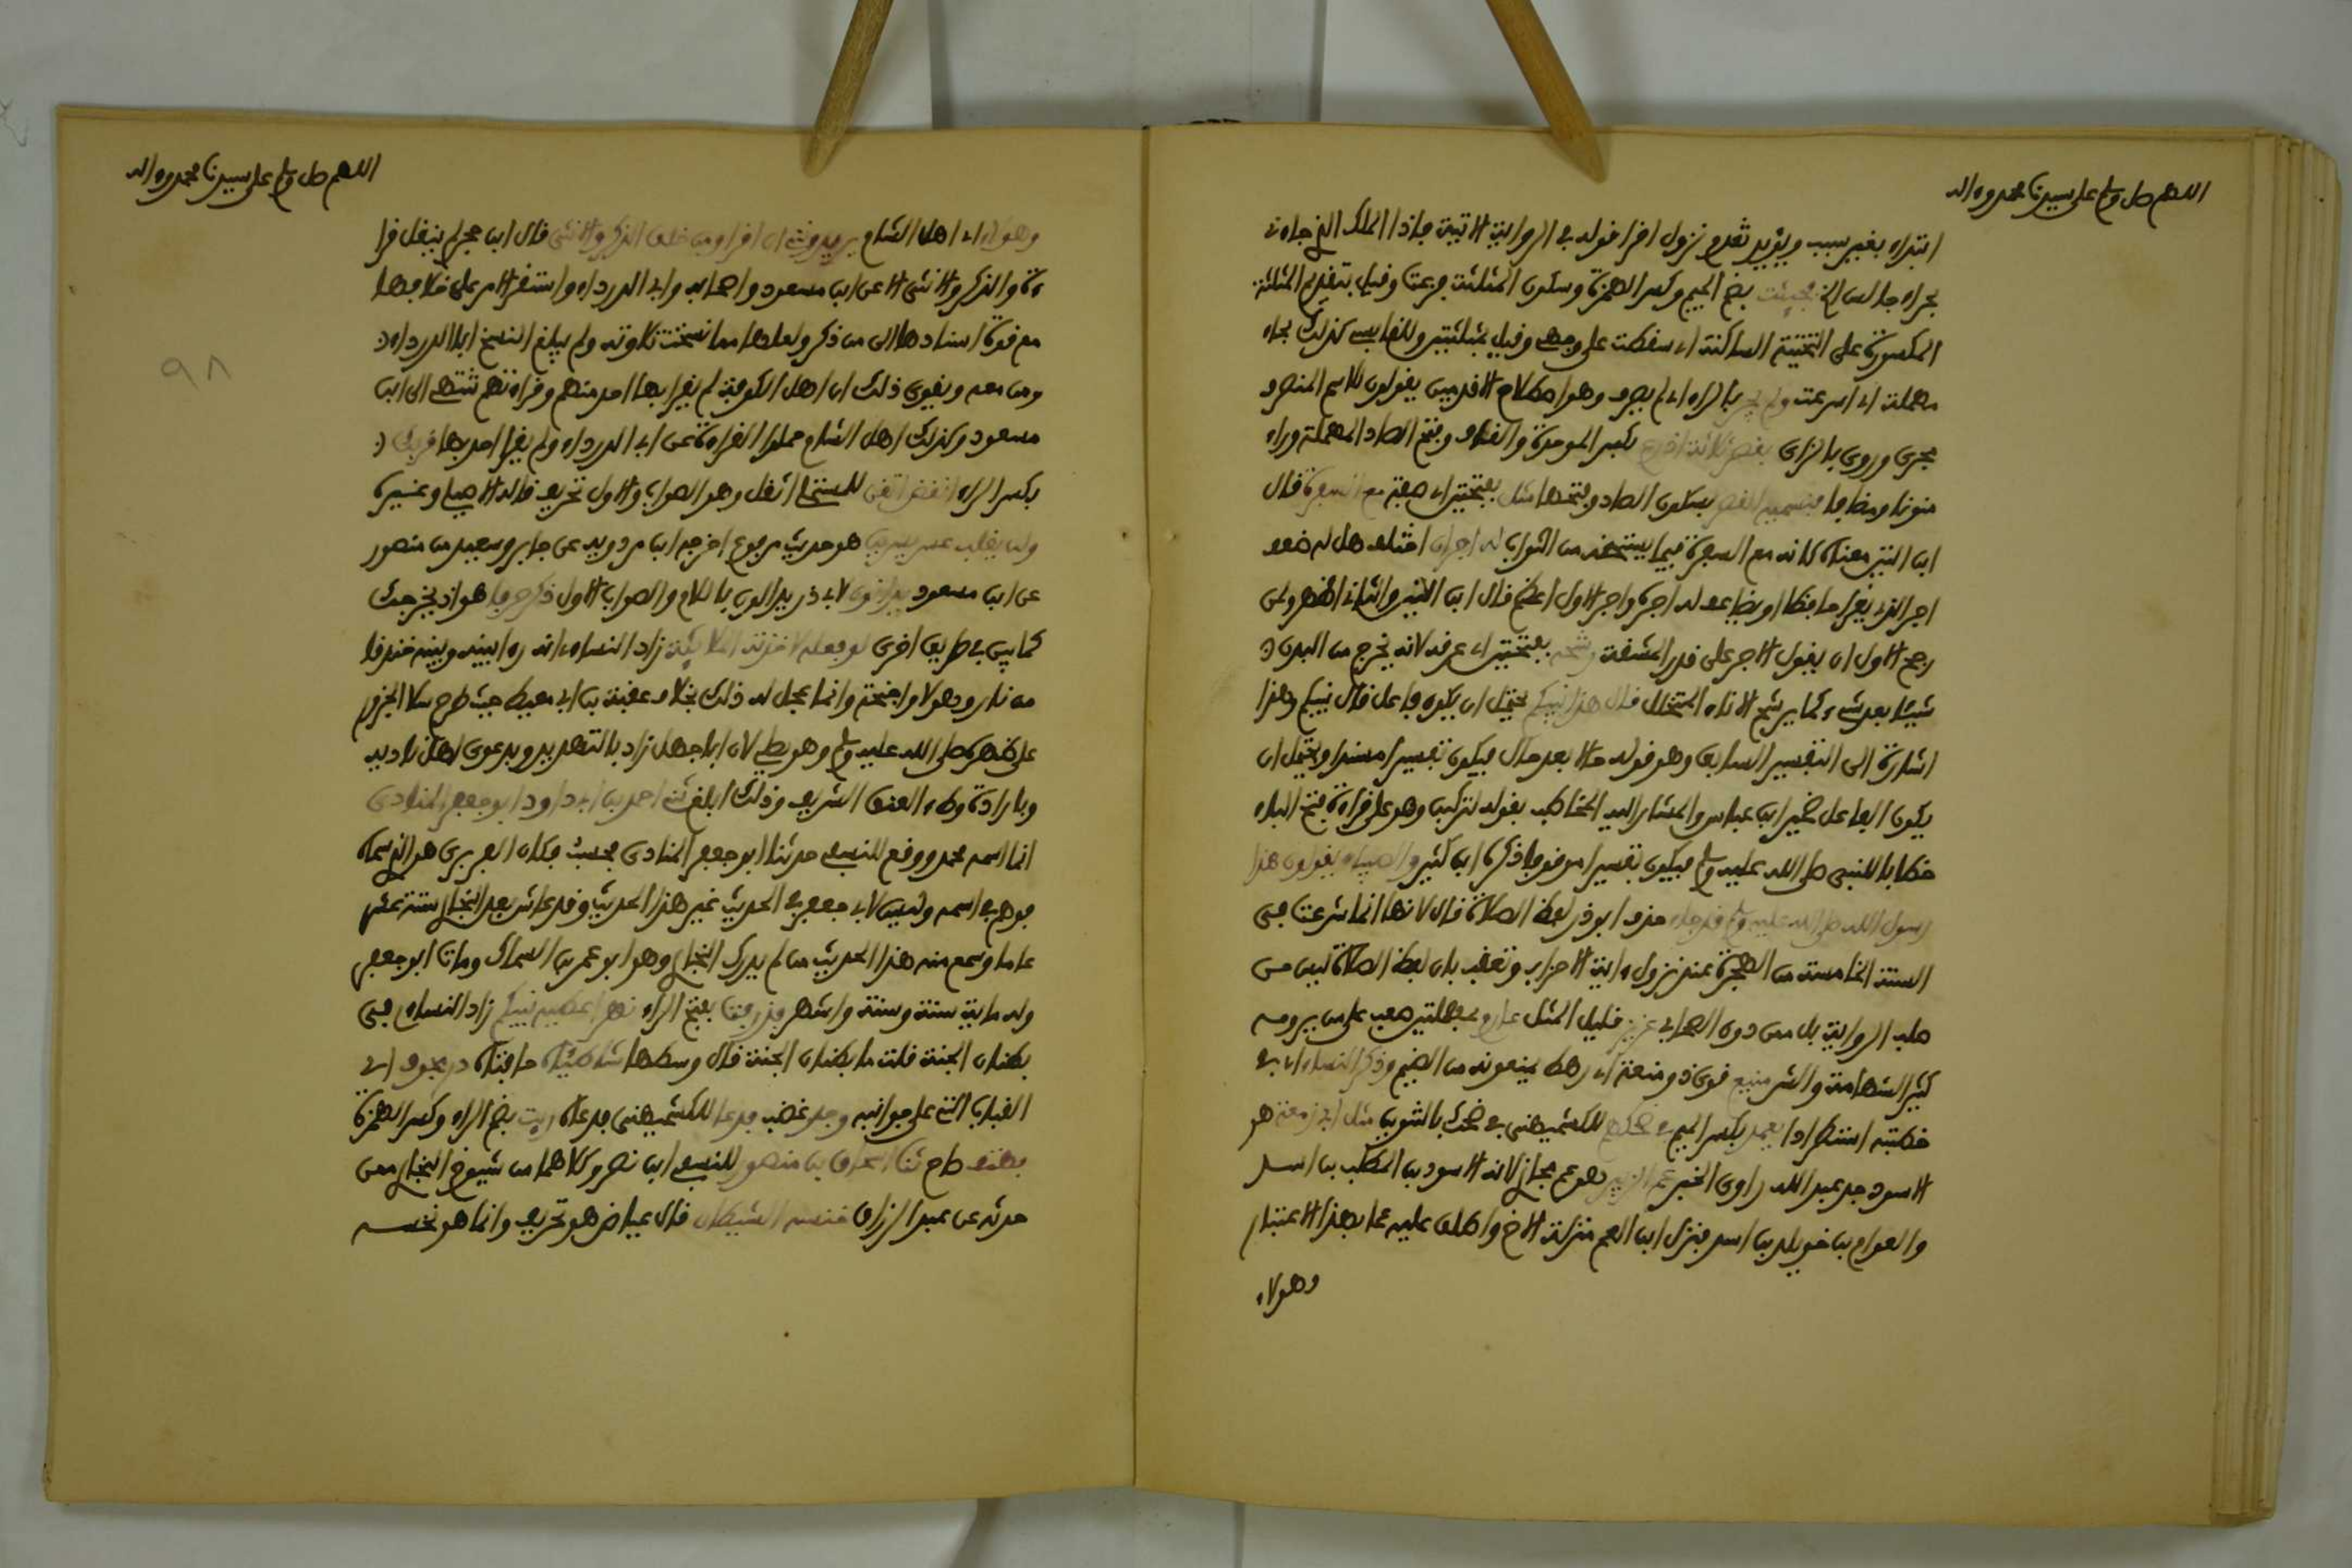 اللهم صل وسلم على سيدنا محمد وءاله
ابتداء بغير سبب ويؤيد تقدم نزول اقرا قوله في الرواية الاتية فاذا الملك الذي جاءني
بحراء جالس الخ فجئثت بضم الجيم وكسر الهمزة وسكون المثلثة فزعت وقيل بتقديم المثلثة
المكسورة على التحتية الساكنة اي سقطت على وجهي وقيل بمثلثتين وللقابسي كذلك بحاء
مهملة اي اسرعت ولم يجر بالراء اي لم يصرف وهو اصطلاح الاقدمين يقولون للاسم المنصرف
مجرى وروي بالزاي بقصر ثلاثة اذرع بكسر الموحدة والقاف وفتح الصاد المهملة وراء
منونا ومضافا فنسميه القصر بسكون الصاد وفتحها مثل بفتحتين اي صفة مع السفرة قال
ابن التين معناه كانه مع السفرة فيما يستحقه من الثواب له اجران اختلف هل له ضعف
اجر الذي يقرا حافظا او يضاعف له اجره واجر الاول اعظم قال ابن التين والثاني اظهر ولمن
رجح الاول ان يقول الاجر على قدر المشقة رشحه بفتحتين اي عرقه لانه يخرج من البدن
شيئا بعد شيء كما يرشح الاناء المتخلل قال هذا نبيكم يحتمل ان يكون فاعل قال نبيكم وهذا
اشارة الى التفسير السابق وهو قوله حالا بعد حال فيكون تفسيرا مسندا ويحتمل ان
يكون الفاعل ضمير ابن عباس والمشار اليه المخاطب بقوله لتركبن وهو على قراءة فتح الباء
خطابا للنبي صلى الله عليه وسلم فيكون تفسيرا موقوفا ذكره ابن كثير والصبيان يقولون هذا
رسول الله صلى الله عليه وسلم قد جاء حذف ابو ذر لفظ الصلاة قال لانها انما شرعت في
السنة الخامسة من الهجرة عند نزول ءاية الاحزاب وتعقب بان لفظ الصلاة ليس من
صلب الرواية بل ممن دون الصحابي عزيز قليل المثل عارم بمهملتين صعب على من يرومه
كثير الشهامة والشر منيع قوي ذو منعة اي رهط يمنعونه من الضيم وذكر النساء اي في
خطبته استطرادا يعمد بكسر الميم في ضحكهم للكشميهني في ضحك بالتنوين مثل ابي زمعة هو
الاسود جد عبد الله راوي الخبر عم الزبير هو عم مجازا لانه الاسود بن المطلب بن اسد
والعوام بن خويلد بن اسد فنزل ابن العم منزلة الاخ واطلق عليه عما بهذا الاعتبار
وهؤلاء
اللهم صل وسلم على سيدنا محمد وءاله
٩٨
وهؤلاء اي اهل الشام يريدونني ان اقرا وما خلق الذكر والانثى قال ابن حجر لم ينقل قرا
ءة والذكر والانثى الا عن ابن مسعود واصحابه وابي الدرداء واستقر الامر على خلافها
مع قوة اسنادها الى من ذكر ولعلها مما نسخت تلاوته ولم يبلغ النسخ ابا الدرداء
ومن معه ويقوي ذلك ان اهل الكوفة لم يقرا بها احد منهم وقراءتهم تنتهي الى ابن
مسعود وكذلك اهل الشام حملوا القراءة عن ابي الدرداء ولم يقرا احد بها قربك
بكسر الراء انقض اتقن للمستملي اثقل وهو الصواب والاول تحريف قاله الاصيلي وغيره
ولن يغلب عسر يسرين هو حديث مرفوع اخرجه ابن مردويه عن جابر وسعيد بن منصور
عن ابن مسعود يدالون لابي ذر يدالون باللام والصواب الاول ذكره فيما هو اذ يخرجت
كما بين في طريق اخرى لو فعله لاخذته الملائكة زاد النساءي انه رءا بينه وبينه خندقا
من نار وهولا واجنحة وانما عجل له ذلك بخلاف عقبة بن ابي معيط حيث طرح سلا الجزور
على ظهره صلى الله عليه وسلم وهو يصلي لان ابا جهل زاد بالتهديد وبدعوى اهل ناديه
وبارادة وطء العنق الشريف وذلك ابلغ ثني احمد بن ابي داود ابو جعفر المنادي
انما اسمه محمد ووقع للنسفي حدثنا ابو جعفر المنادي فحسب فكان الفربري هو الذي سماه
فوهم في اسمه وليس لابي جعفر في الحديث غير هذا الحديث وقد عاش بعد البخاري ستة عشر
عاما وسمع منه هذا الحديث من لم يدرك البخاري وهو ابو عمر بن السماك ومات ابو جعفر
وله ماية سنة وسنة واشهر فذرفت بفتح الراء نهر اعطيه نبيكم زاد النساءي في
بطنان الجنة قلت ما بطنان الجنة قال وسطها شاطئاه حافتاه در مجوف اي
القباب التي على جوانبه وجد غضب فدعا للكشميهني فدعاه ريت بضم الراء وكسر الهمزة
بهتف صاح ثنا اسحاق بن منصور للنسفي ابن نصر وكلاهما من شيوخ البخاري ممن
حدثه عن عبد الرزاق خنسه الشيطان قال عياض هو تحريف وانما هو نخسه